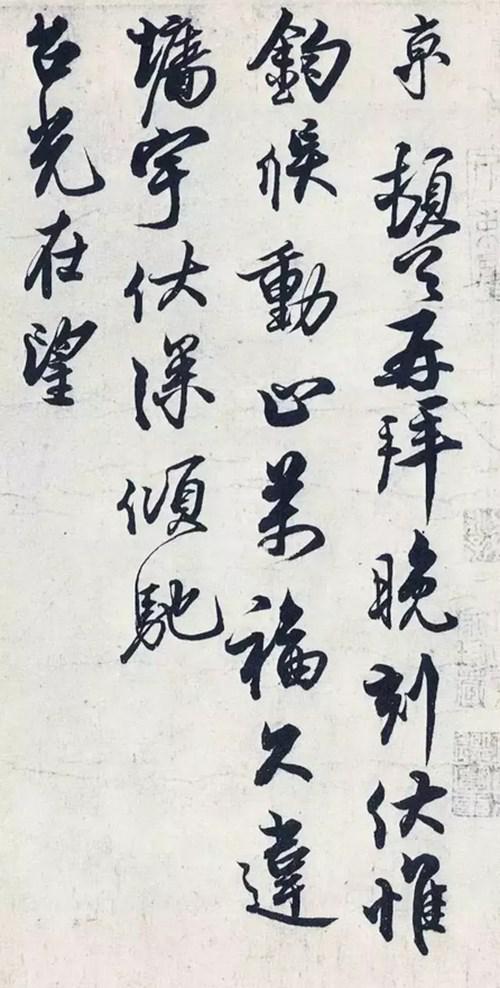 京 頓首再拜晚刻伏惟
鈞候動止萬福久違
墻宇伏深傾馳
台光在望